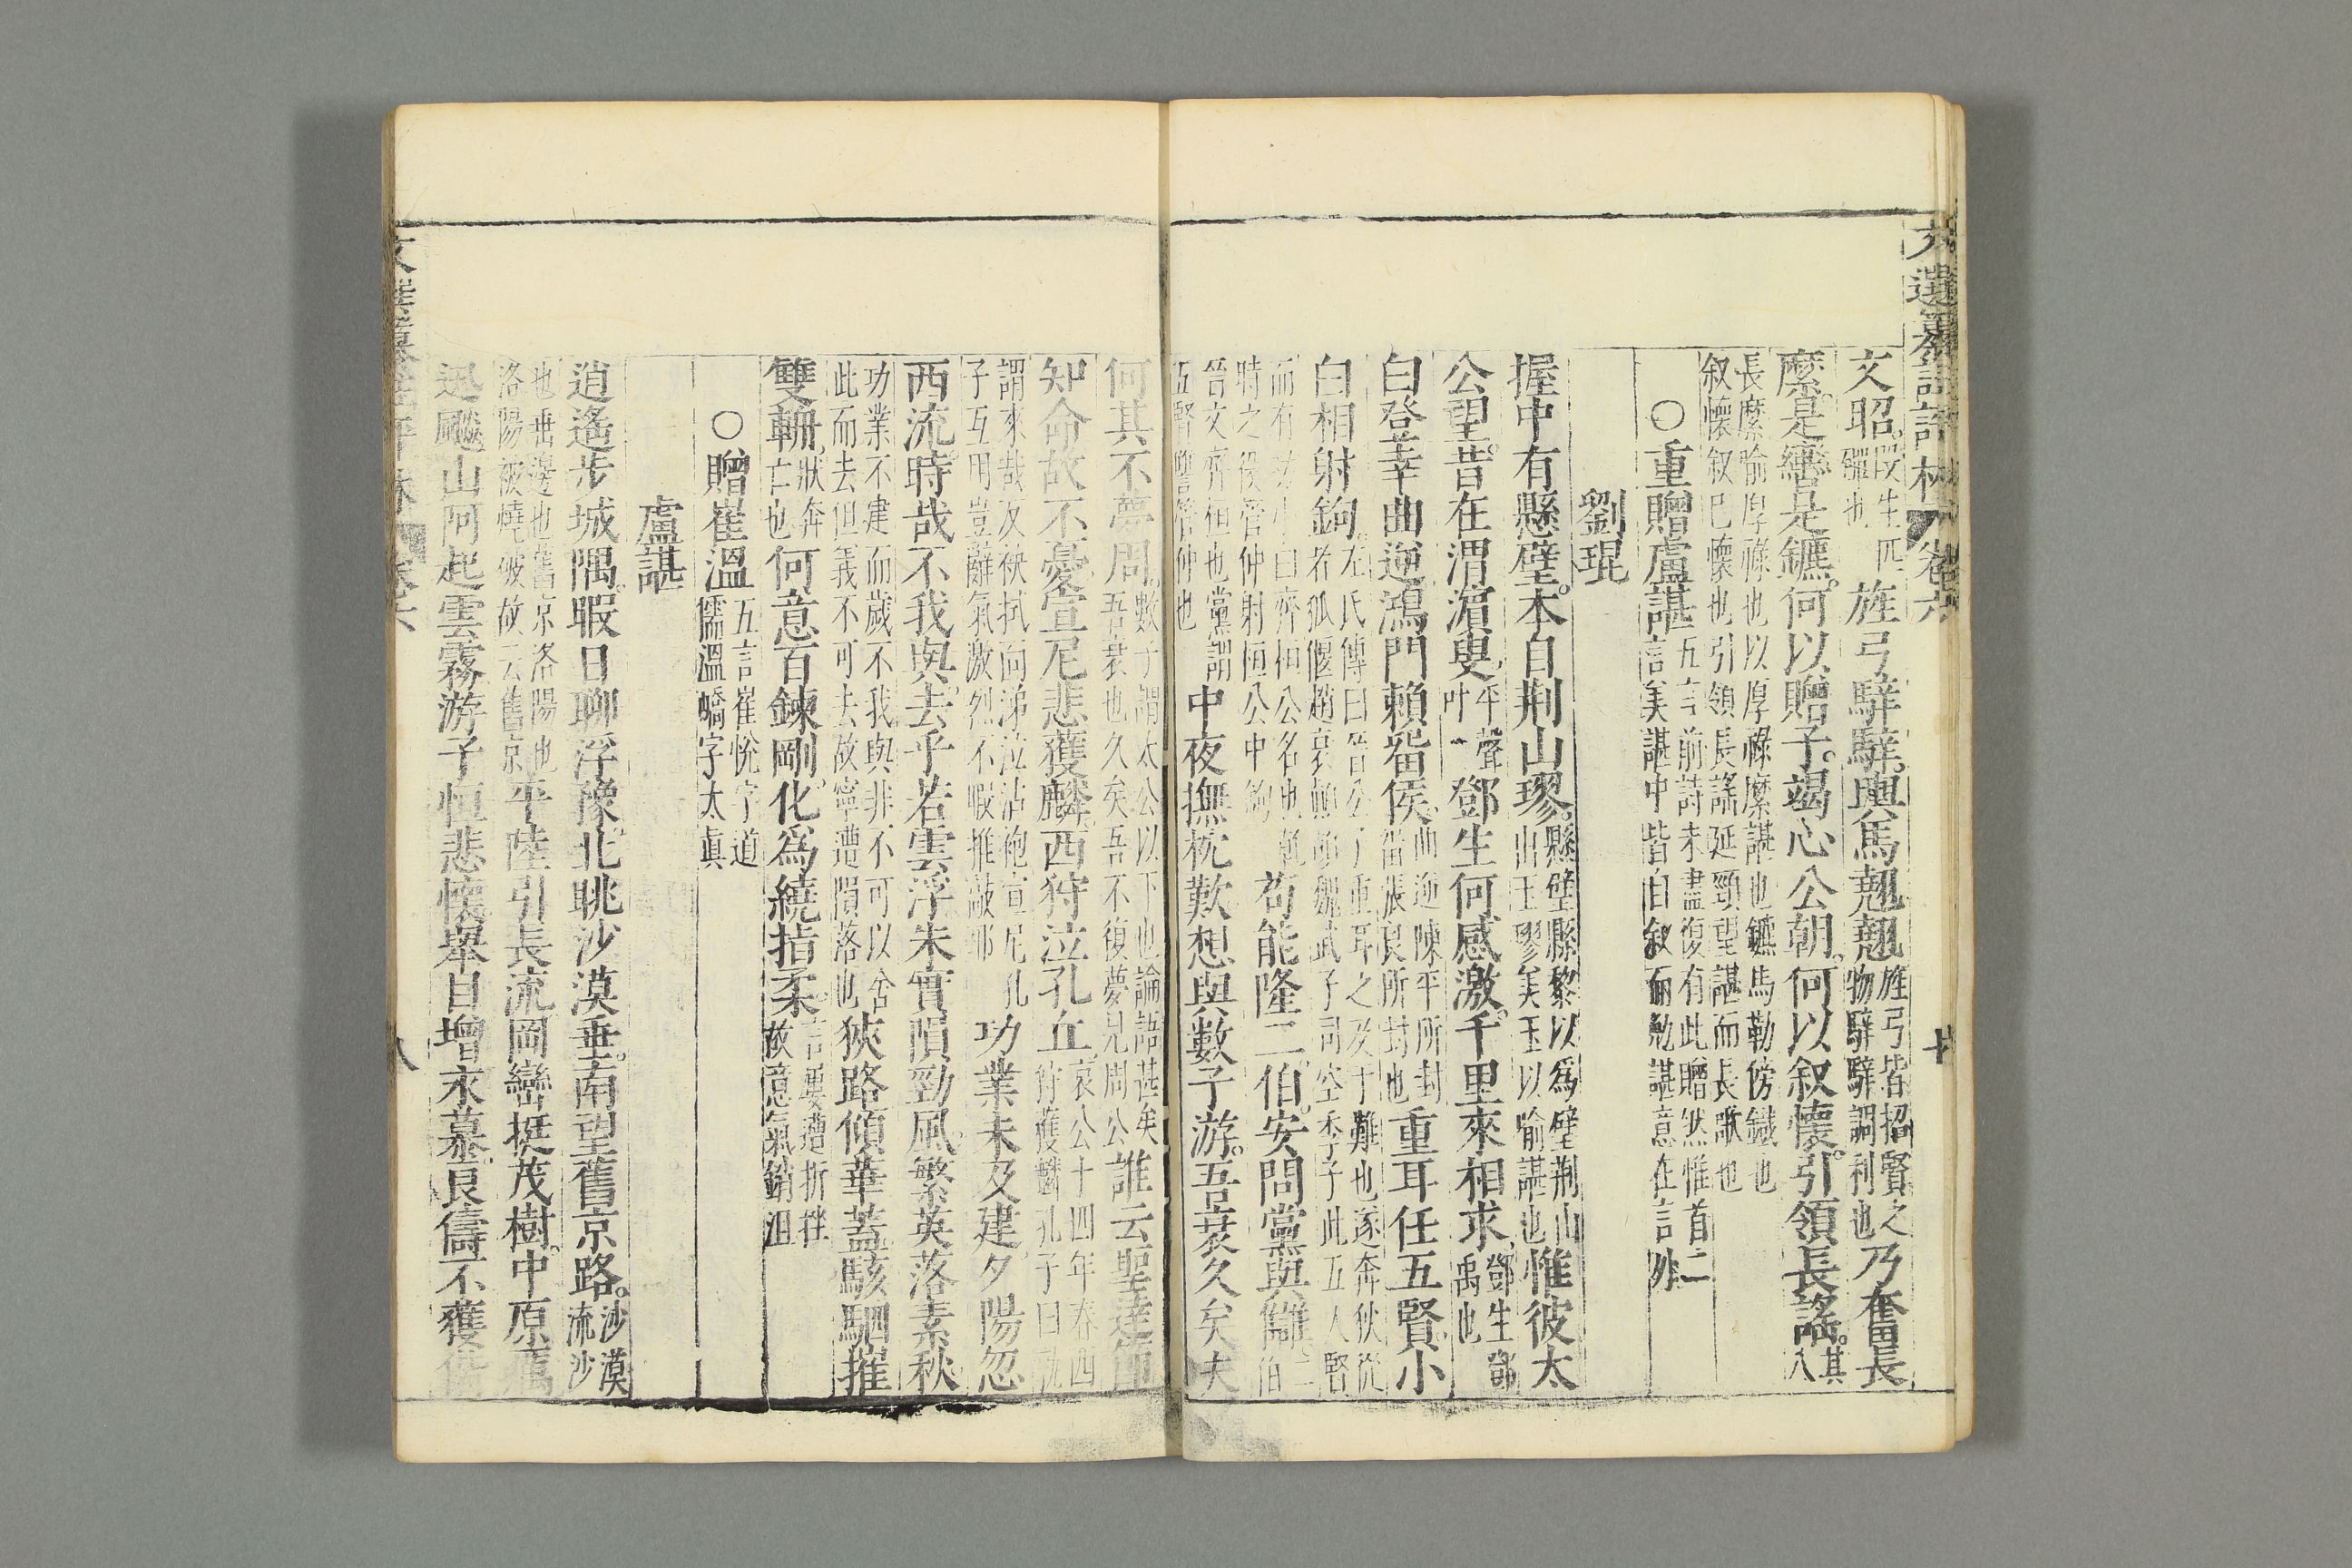 文選纂註評林 卷六
文昭。段生匹 旌弓騂騂。輿馬翹翹。旌弓皆招賢之 乃奮長
儸也 物騂騂調利也
縻。是轡是鑣。何以贈子。竭心公朝。何以叙懷。引領長謠。其八
長縻喻厚祿也以厚祿縻諶也鑣馬勒傍鐵也
叙懷叙己懷也引領長謠延頸望諶而長歌也
○重贈盧諶 五言前詩未盡復有此贈然惟首二
言美諶中皆自叙而勉諶意在言外
劉琨
握中有懸璧。本自荆山璆。懸璧縣黎以爲璧荆山 惟彼太
出玉璆美玉以喻諶也
公望。昔在渭濱叟。平聲 鄧生何感激。千里來相求。鄧生鄧
叶 禹也
白登幸曲逆。鴻門賴留侯。曲逆陳平所封 重耳任五賢。小
留張良所封也
白相射鉤。左氏傳曰晉公子重耳之及于難也遂奔狄從
者狐偃趙衰顛頡魏武子司空季子此五人賢
而有 小白齊桓公名也 苟能隆二伯。安問黨與讎。二
時之役管仲射桓公中鉤 伯
晉文齊桓也黨謂 中夜撫枕歎。想與數子游。吾衰久矣夫。
五賢讎管仲也
何其不夢周。數子謂太公以下也論語甚矣 誰云聖達節。
吾衰也久矣吾不復夢見周公
知命故不憂。宣尼悲獲麟。西狩泣孔丘。哀公十四年春西
狩獲麟孔子曰孰
謂來哉反袂拭面涕泣沾袍宣尼孔 功業未及建。夕陽忽
子互用豈辭氣激烈不暇推敲耶
西流。時哉不我與。去乎若雲浮。朱實隕勁風。繁英落素秋。
功業不建而歲不我與非不可以舍 狹路傾華蓋。駭駟摧
此而去但義不可去故寧遭隕落也
雙輈。狀奔 何意百鍊剛。化爲繞指柔。言屢遭折挫
亡也 故意氣銷沮
○贈崔溫 五言崔悅字道
儒溫嶠字太眞
盧諶
逍遙步城隅。暇日聊浮豫。北眺沙漠垂。南望舊京路。沙漠
流沙
也垂邊也舊京洛陽也 平陸引長流。岡巒挺茂樹。中原厲
洛陽被燒破故云舊京
迅飈。山阿起雲霧。游子恒悲懷。舉目增永慕。良儔不獲